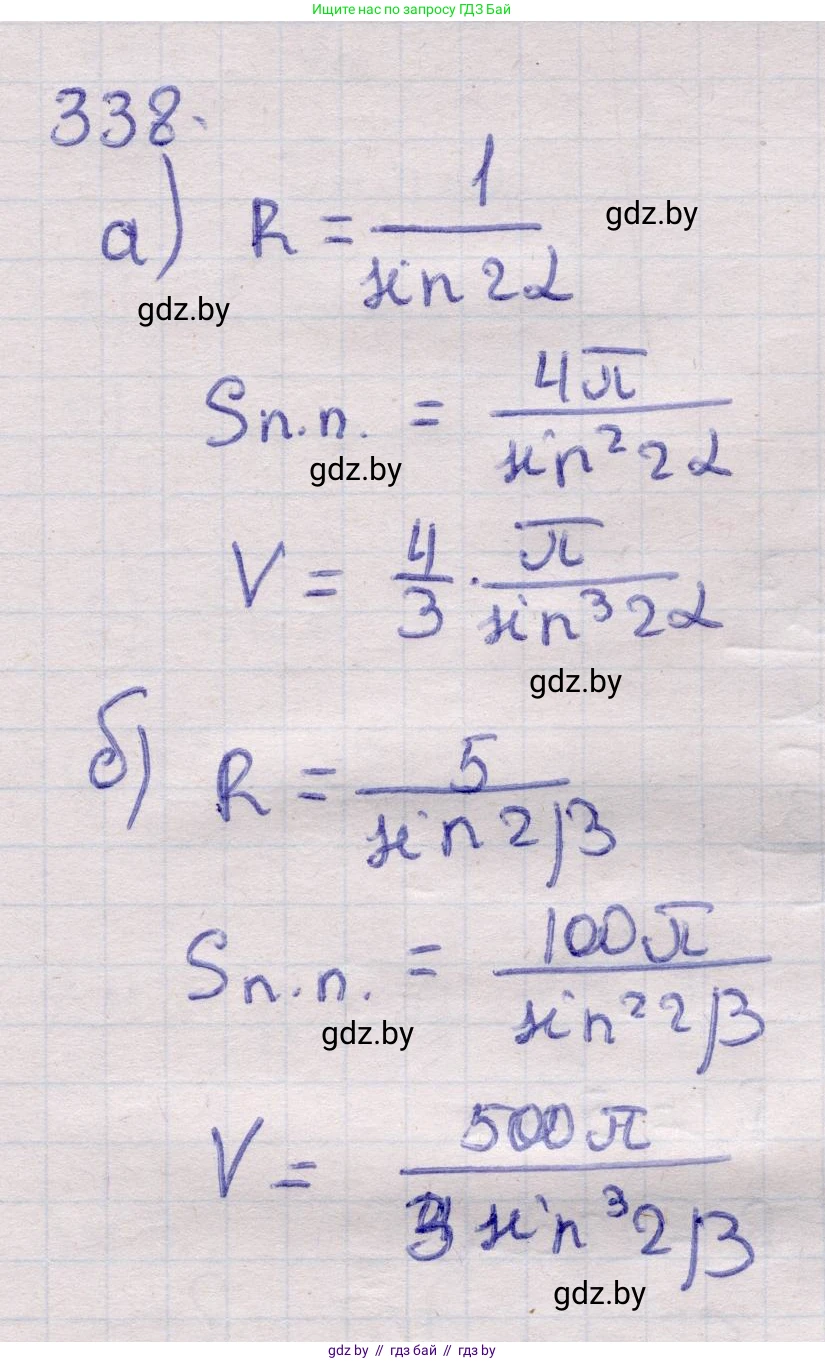 Ищите нас по запросу ГДЗ Бай
338.
а) R = 1 / sin 2α
gdz.by
gdz.by
Sп.п. = 4π / sin² 2α
gdz.by
V = 4/3 · π / sin³ 2α
gdz.by
б) R = 5 / sin 2β
Sп.п. = 100π / sin² 2β
gdz.by
V = 500π / 3 sin³ 2β
gdz.by
gdz.by // гдз бай // гдз by